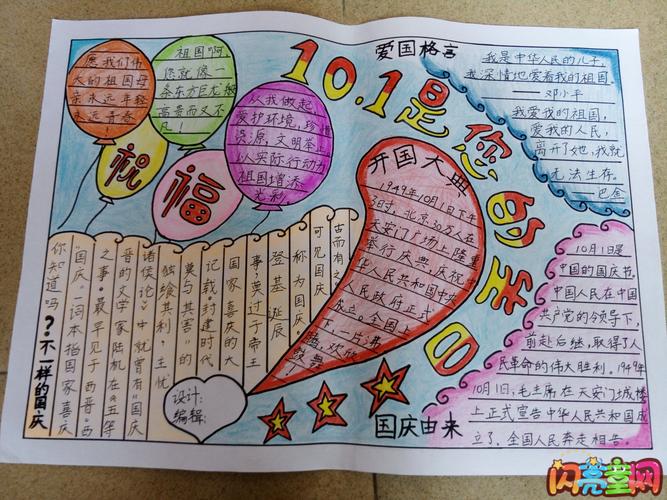 10.1是您的生日
愿我们伟
大的祖国母
亲永远年轻
永远青春
!
祖国啊
您就像一
条东方巨龙
高贵而又不
凡!
祝
福
从我做起
爱护环境,珍惜
资源,文明举止
以实际行动为
祖国增添
光彩
爱国格言
我是中华人民的儿子,
我深情地爱着我的祖国
——邓小平
我爱我的祖国,
爱我的人民,
离开了她,我就
无法生存。
——巴金
开国大典
1949年10月1日下午
3时,北京30万人在
天安门广场上隆重
举行庆典,庆祝中
华人民共和国中央
人民政府正式
成立。全国上
下一片沸
腾,欢欣
鼓舞
10月1日是
中国的国庆节。
中国人民在中国
共产党的领导下,
前赴后继,取得了人
民革命的伟大胜利。1949年
10月1日,毛主席在天安门城楼
上正式宣告中华人民共和国成
立了,全国人民奔走相告。
国庆由来
你知道吗?不一样的国庆
“国庆”一词本指国家喜庆
之事,最早见于西晋。西
晋的文学家陆机在《五等
诸侯论》中就曾有“国庆
独飨其利,主忧
莫与其害”的
记载。封建时代
国家喜庆的大
事,莫过于帝王
登基诞辰
称为国庆。
可见国庆
古而有之
设计:
编辑:
闪亮童网